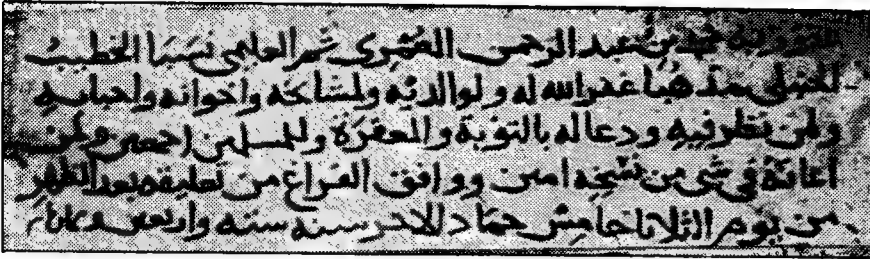 محمد بن عبد الرحمن العمري ثم العلمى نسبا الخطيب
الحنبلى مذهبا غفر الله له ولوالديه ولمشايخه واخوانه واحبابه
ولمن نظر فيه ودعا له بالتوبة والمغفرة وللمسلمين اجمعين ولمن
اعانه فى شى من نسخه امين ووافق الفراغ من تعليقه بعد الظهر
من يوم الثلاثا خامس جماد الاخر سنه سته واربعين وثمان